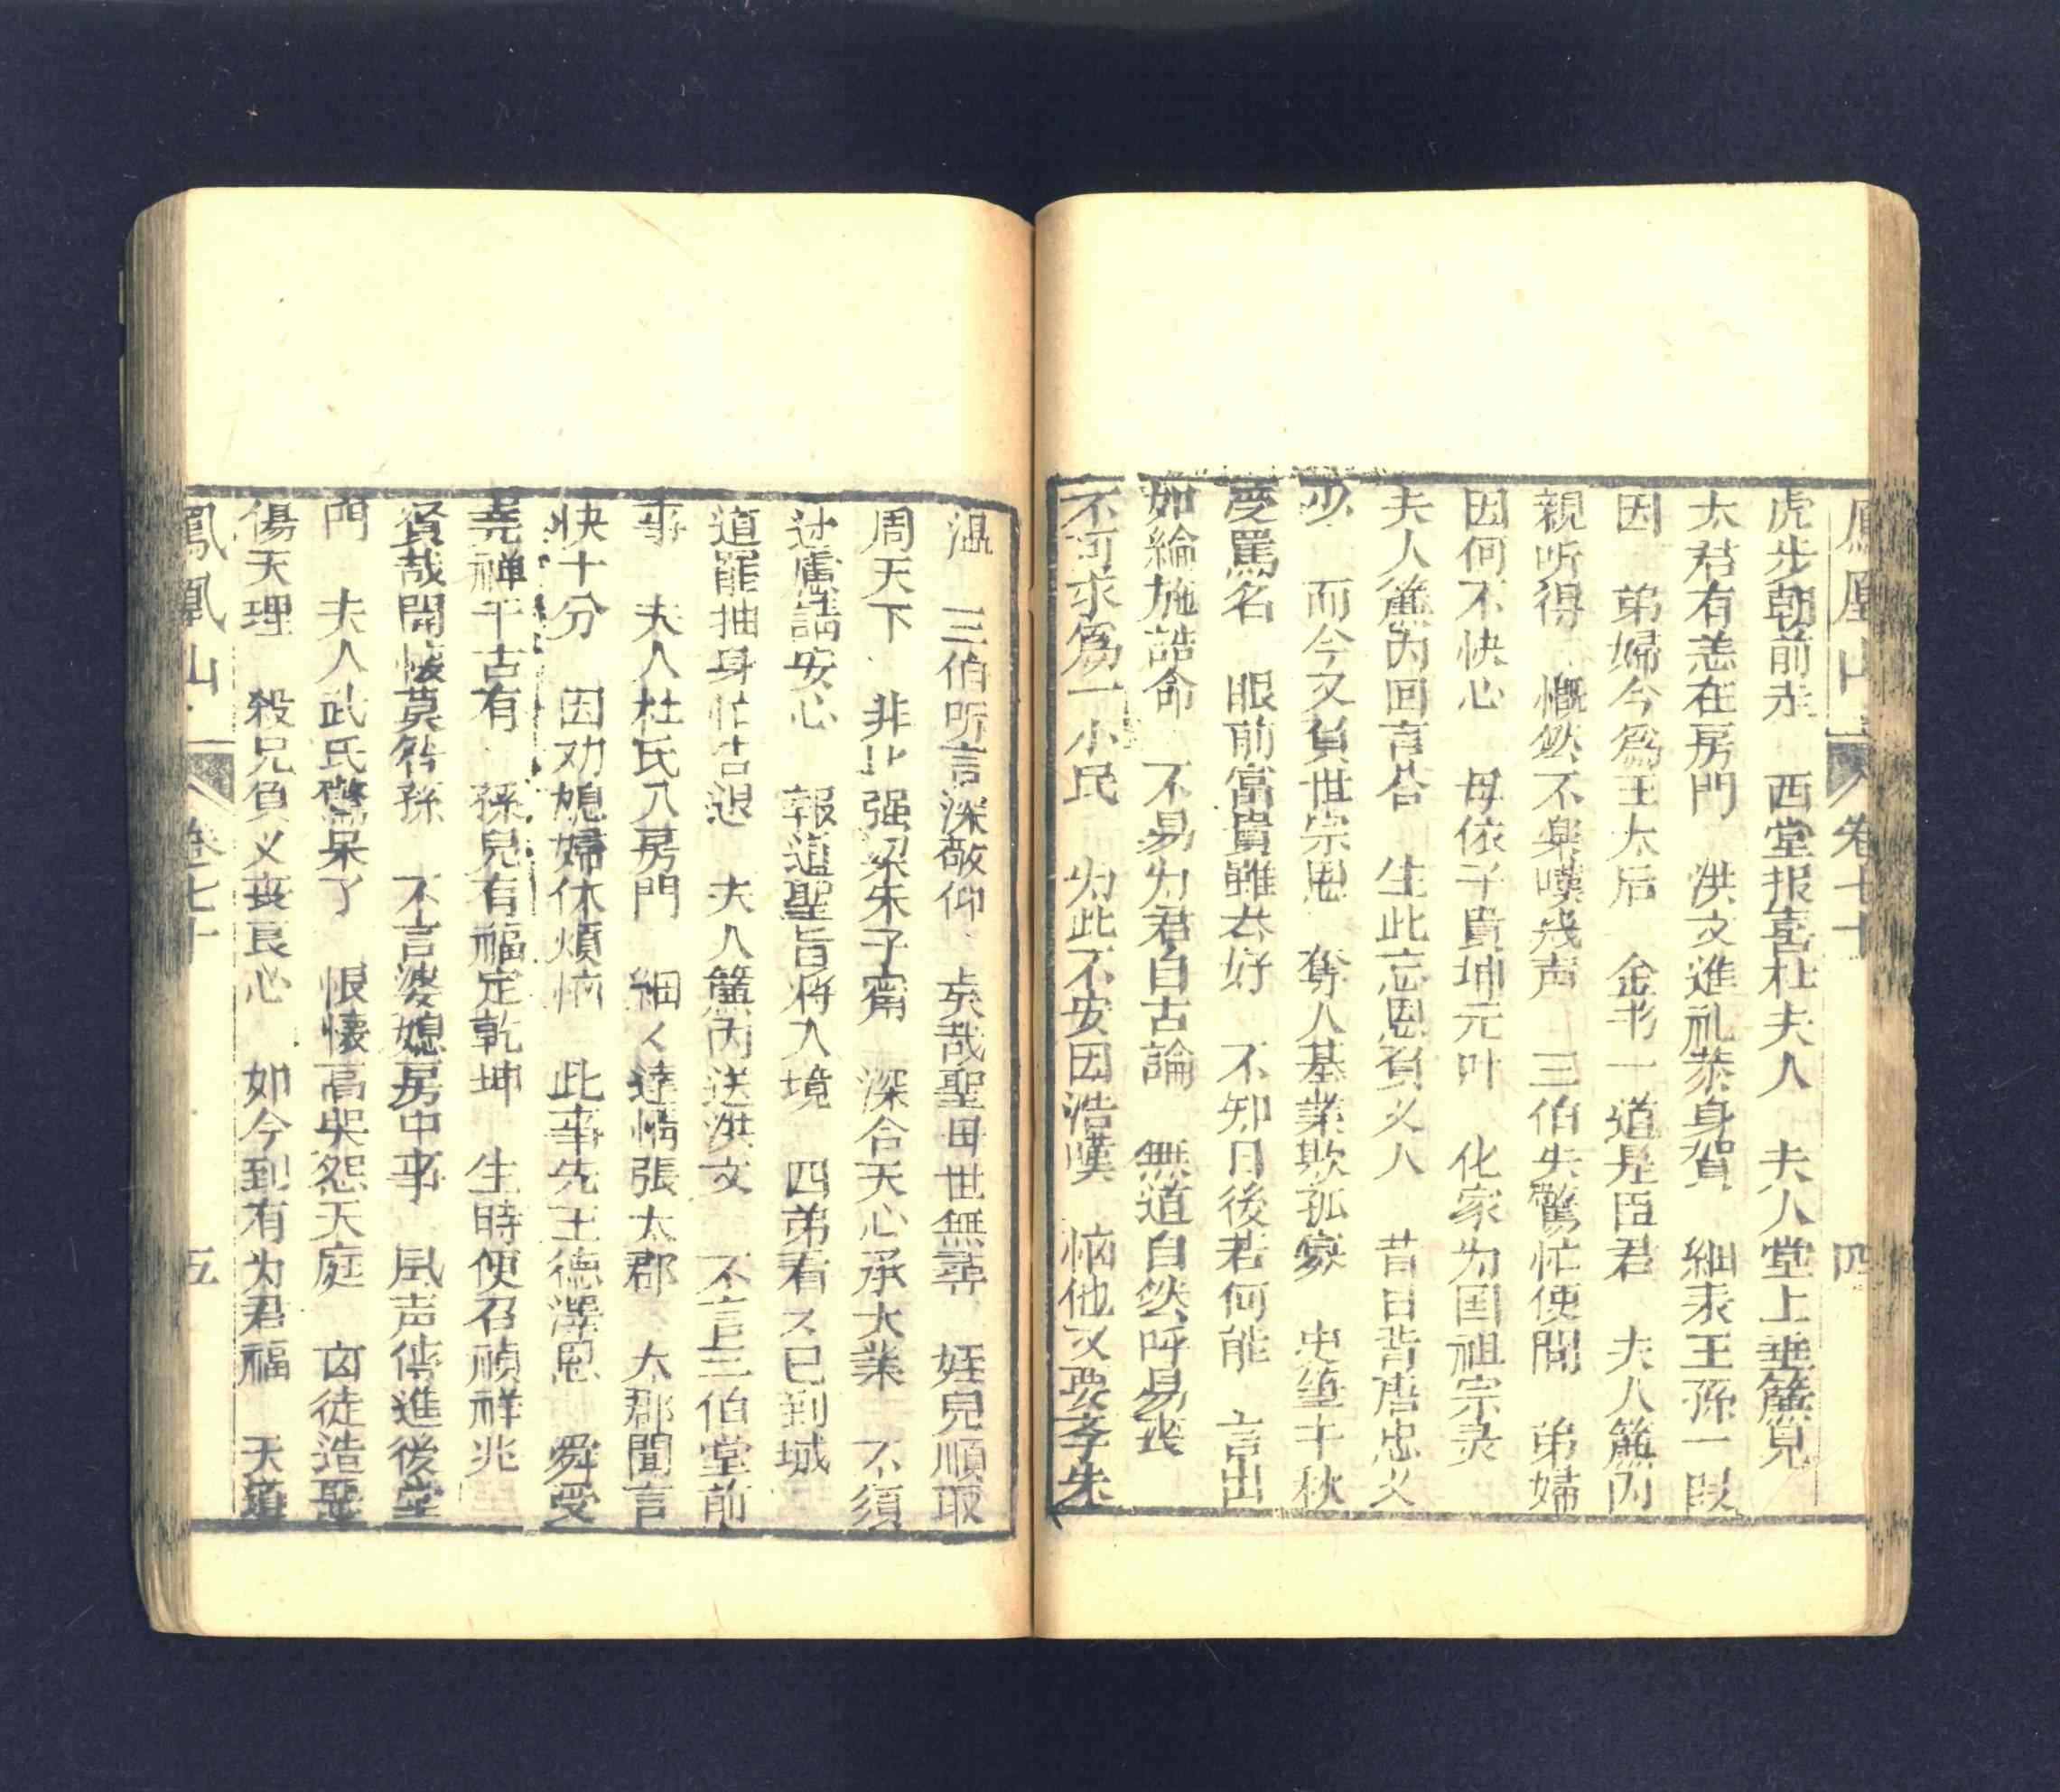 鳳凰山 卷七十 四
虎步朝前走 西堂报喜杜夫人 夫人堂上垂簾見
太君有恙在房門 洪文進礼恭身賀 細表王孫一段
因 弟婦今爲王太后 金书一道是臣君 夫人簾內
親听得 慨然不樂嘆㦮声 三伯失驚忙便問 弟婦
因何不快心 母依子貴坤元叶 化家为国祖宗灵
夫人簾內回言答 生此忘恩負义人 昔日背唐忠义
少 而今又負世宗恩 奪人基業欺孤寡 史筆千秋
受罵名 眼前富貴雖然好 不知日後若何能 言出
如綸施誥命 不易为君自古論 無道自然呼易丧
不可求爲一小民 为此不安因浩嘆 惱他又要李朱
温 三伯听言深敬仰 哀哉聖母世無尋 姪兒順取
周天下 非比强梁朱子甯 深合天心承大業 不須
过慮請安心 報道聖旨将入境 四弟看ス已到城
道罷抽身忙告退 夫人簾內送洪文 不言三伯堂前
事 夫人杜氏入房門 細く達情張太郡 太郡聞言
快十分 因劝媳婦休煩惱 此事先王德澤恩 舜受
堯禅千古有 孫兒有福定乾坤 生時便召禎祥兆
賢哉開懷莫咎孫 不言婆媳房中事 風声傳進後堂
門 夫人武氏驚呆了 恨懷高哭怨天庭 囟徒造聖
傷天理 殺兄負义丧良心 如今到有为君福 天道
鳳凰山 卷七十 五